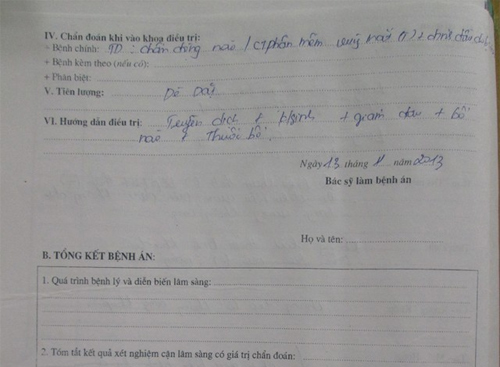 IV. Chẩn đoán khi vào khoa điều trị:
+ Bệnh chính: TD: chấn động não / CT phần mềm vùng mặt (T) + chợt
+ Bệnh kèm theo (nếu có):
+ Phân biệt:
V. Tiên lượng: Dè dặt
VI. Hướng dẫn điều trị: Truyền dịch + + giảm đau + bổ
não + thuốc bổ.
Ngày 13 tháng 1 năm 2013
Bác sỹ làm bệnh án
Họ và tên:
B. TỔNG KẾT BỆNH ÁN:
1. Quá trình bệnh lý và diễn biến lâm sàng:
2. Tóm tắt kết quả xét nghiệm cận lâm sàng có giá trị chẩn đoán: